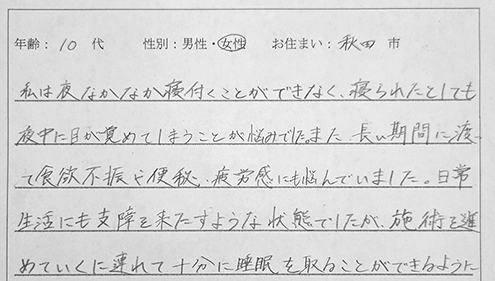 年齢：10 代　性別：男性・女性　お住まい：秋田 市
私は夜なかなか寝付くことができなく、寝られたとしても
夜中に目が覚めてしまうことが悩みでした。また、長い期間に渡っ
て食欲不振や便秘、疲労感にも悩んでいました。日常
生活にも支障を来たすような状態でしたが、施術を進
めていくに連れて十分に睡眠を取ることができるように